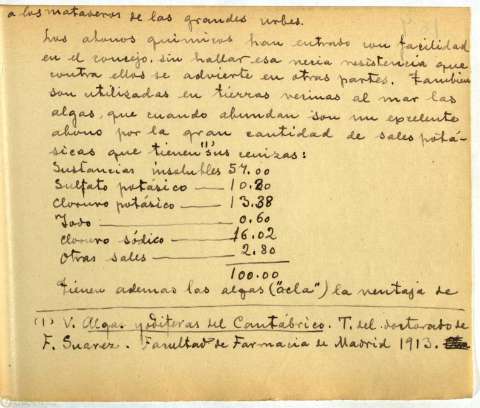 a los mataderos de las grandes urbes.
Los abonos químicos han entrado con facilidad
en el consejo, sin hallar esa necia resistencia que
contra ellos se advierte en otras partes. Tambien
son utilizadas en tierras vecinas al mar las
algas, que cuando abundan son un excelente
abono por la gran cantidad de sales potá-
sicas que tienen (1) sus cenizas:
Sustancias insolubles 57.00
Sulfato potásico — 10.20
Cloruro potásico — 13.38
Yodo — 0.60
Cloruro sódico — 16.02
Otras sales — 2.80
100.00
Tienen ademas las algas ("ocla") la ventaja de
(1) V. Algas yodíferas del Cantábrico. T. del doctorado de
F. Suarez. Facultad de Farmacia de Madrid 1913.